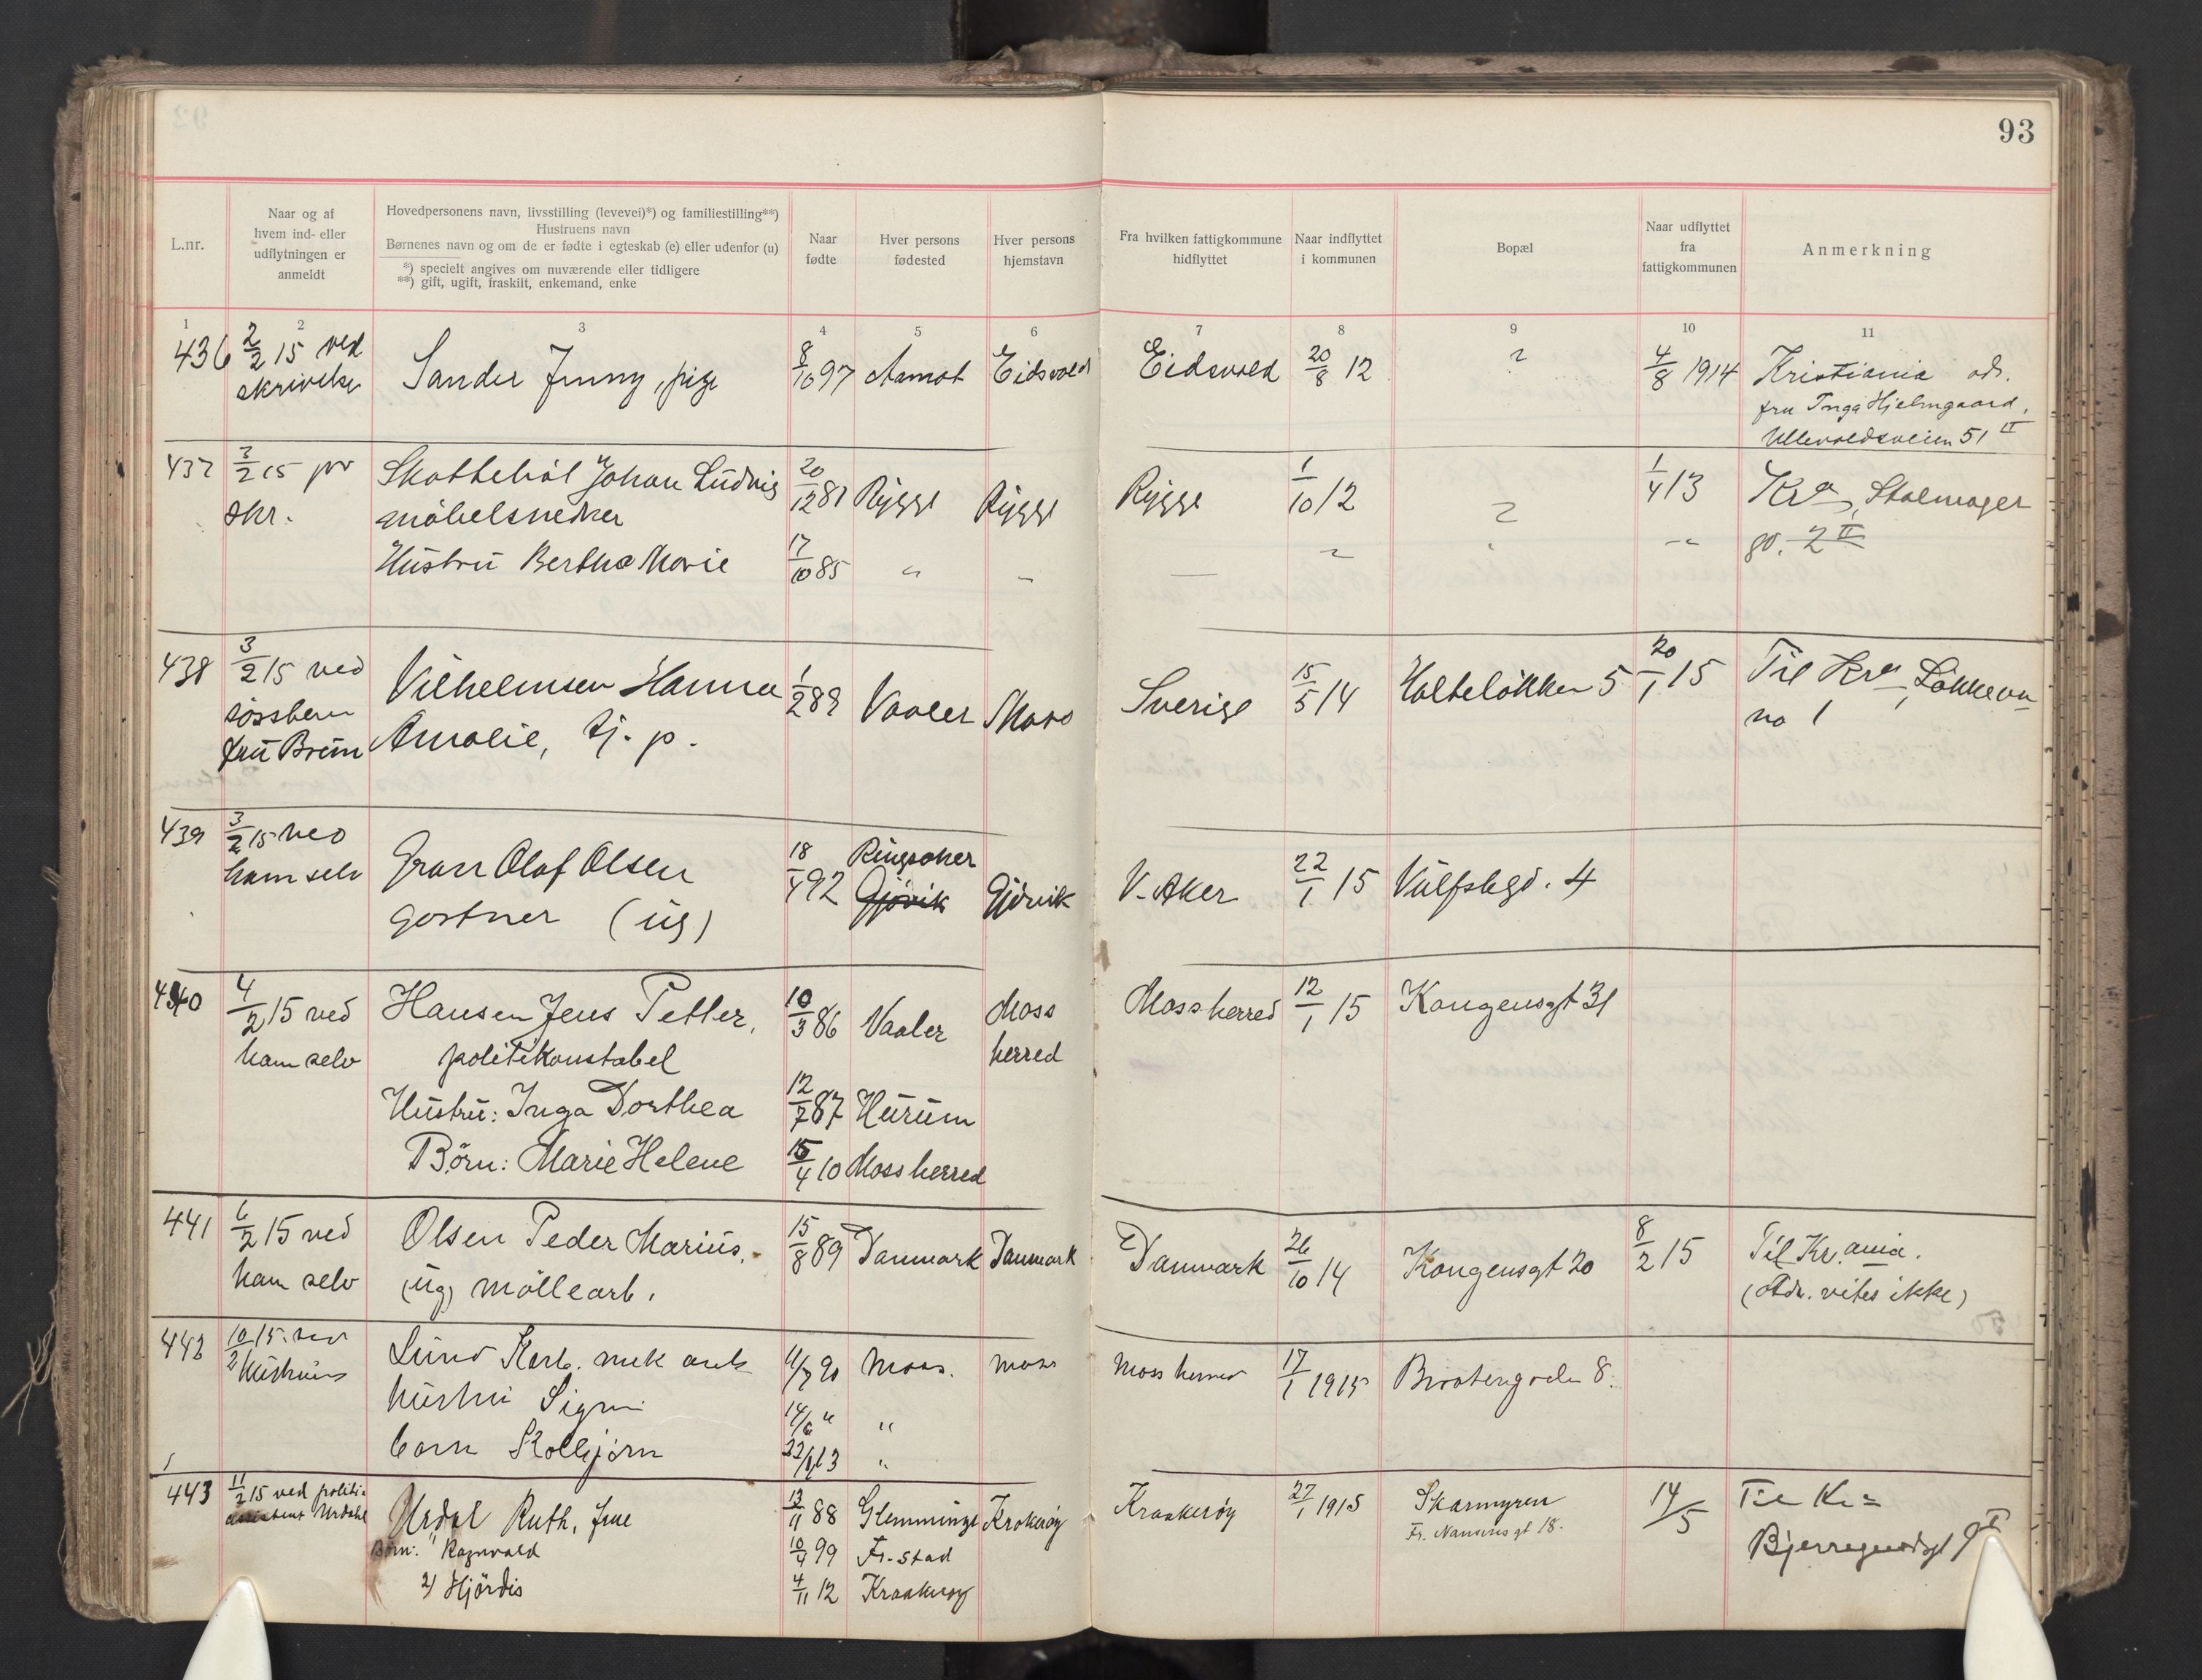 93
L.nr.
Naar og af
hvem ind- eller
udflytningen er
anmeldt
Hovedpersonens navn, livsstilling (levevei)*) og familiestilling**)
Hustruens navn
Børnenes navn og om de er fødte i egteskab (e) eller udenfor (u)
*) specielt angives om nuværende eller tidligere
**) gift, ugift, fraskilt, enkemand, enke
Naar
fødte
Hver persons
fødested
Hver persons
hjemstavn
Fra hvilken fattigkommune
hidflyttet
Naar indflyttet
i kommunen
Bopæl
Naar udflyttet
fra
fattigkommunen
Anmerkning
1 2 3 4 5 6 7 8 9 10 11
436 2/2 15 ved Sander Jenny, pige 8/10 97 Aamot Eidsvold Eidsvold 20/8 12 ? 4/8 1914 Kristiania adr.
skrivelse fru Inga Hjelmgaard,
Ullevoldsveien 51 II
437 3/2 15 pr Skattebøl Johan Ludvig 20/12 81 Rygge Rygge Rygge 1/10 12 ? 1/4 13 Kra, Stolmager
skr. møbelsnedker gd. 2 II
Hustru Berthe Marie 17/10 85 "
438 3/2 15 ved Vilhelmsen Hanna 1/2 89 Vaaler Moss Sverige 15/5 14 Holteløkken 5 20/1 15 Til Kra, Løkkevn
fru Brun Amalie, tj. p. no 1
439 3/2 15 ved Olaf Olsen 18/4 92 Ringsaker V. Aker 22/1 15 4
ham selv gartner (ug) Gjøvik Gjøvik
440 4/2 15 ved Hansen Jens Petter, 10/3 86 Vaaler Moss Moss herred 12/1 15 Kongensgt 31
ham selv politikonstabel herred
Hustru: Inga Dorthea 12/7 87 Hurum
Børn: Marie Helene 15/4 10 Moss herred
441 6/2 15 ved Olsen Peder Marius, 15/8 89 Danmark Danmark Danmark 26/10 14 Kongensgt 20 8/2 15 Til Kr.ania.
ham selv (ug) møllearb. (Adr. vites ikke)
442 10/2 15. ved Lund Karl. mek arb 11/7 90 Moss. Moss Moss herred 17/1 1915 8.
hustru Signe 14/6 " "
barn Kolbjørn "
443 11/2 15 ved politi- Urdal Ruth, frue 13/11 88 Glemminge Krokerøy Kraakerøy 27/1 1915 Skarmyren 14/5 Til Kr=
assistent Urdahl Fr. Nansensgt 18.
Børn: " Ragnvald 10/4 99 Fr.stad Bjerregaardsgt
2) Hjördis 4/11 12 Kraakerøy